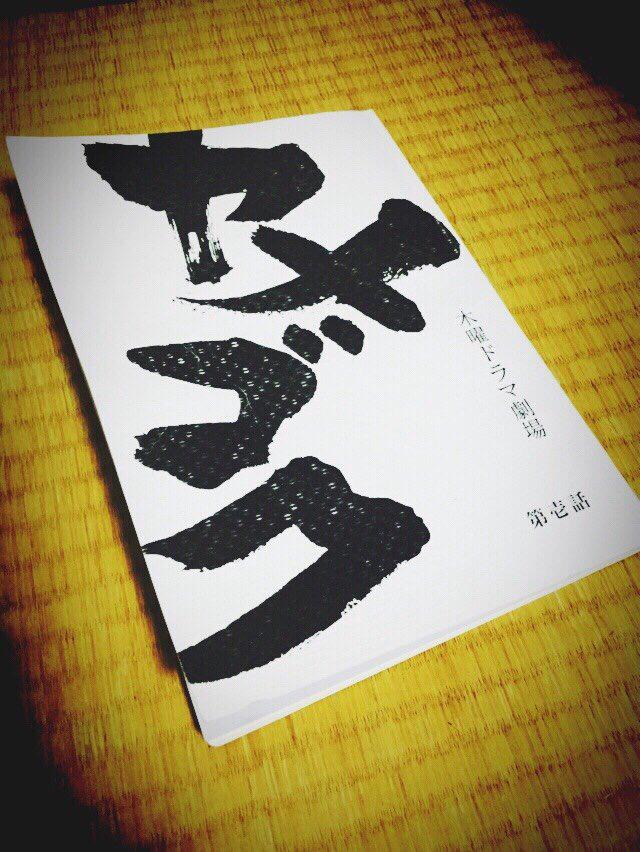 木曜ドラマ劇場
ヤメゴク
第壱話